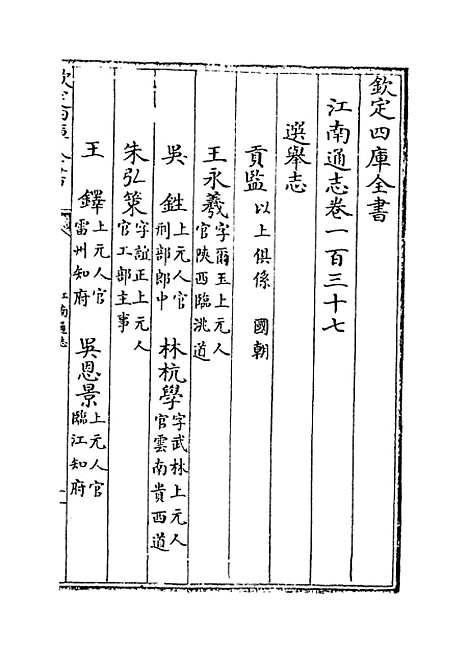 欽定四庫全書
江南通志卷一百三十七
選舉志
貢監以上俱係 國朝
王永羲字爾玉上元人官陝西臨洮道
吳 甡上元人官刑部郎中 林杭學字武林上元人官雲南貴西道
朱弘策字誼正上元人官工部主事
王 鐸上元人官雷州知府 吳恩景上元人官臨江知府
欽定四庫全書
江南通志
一